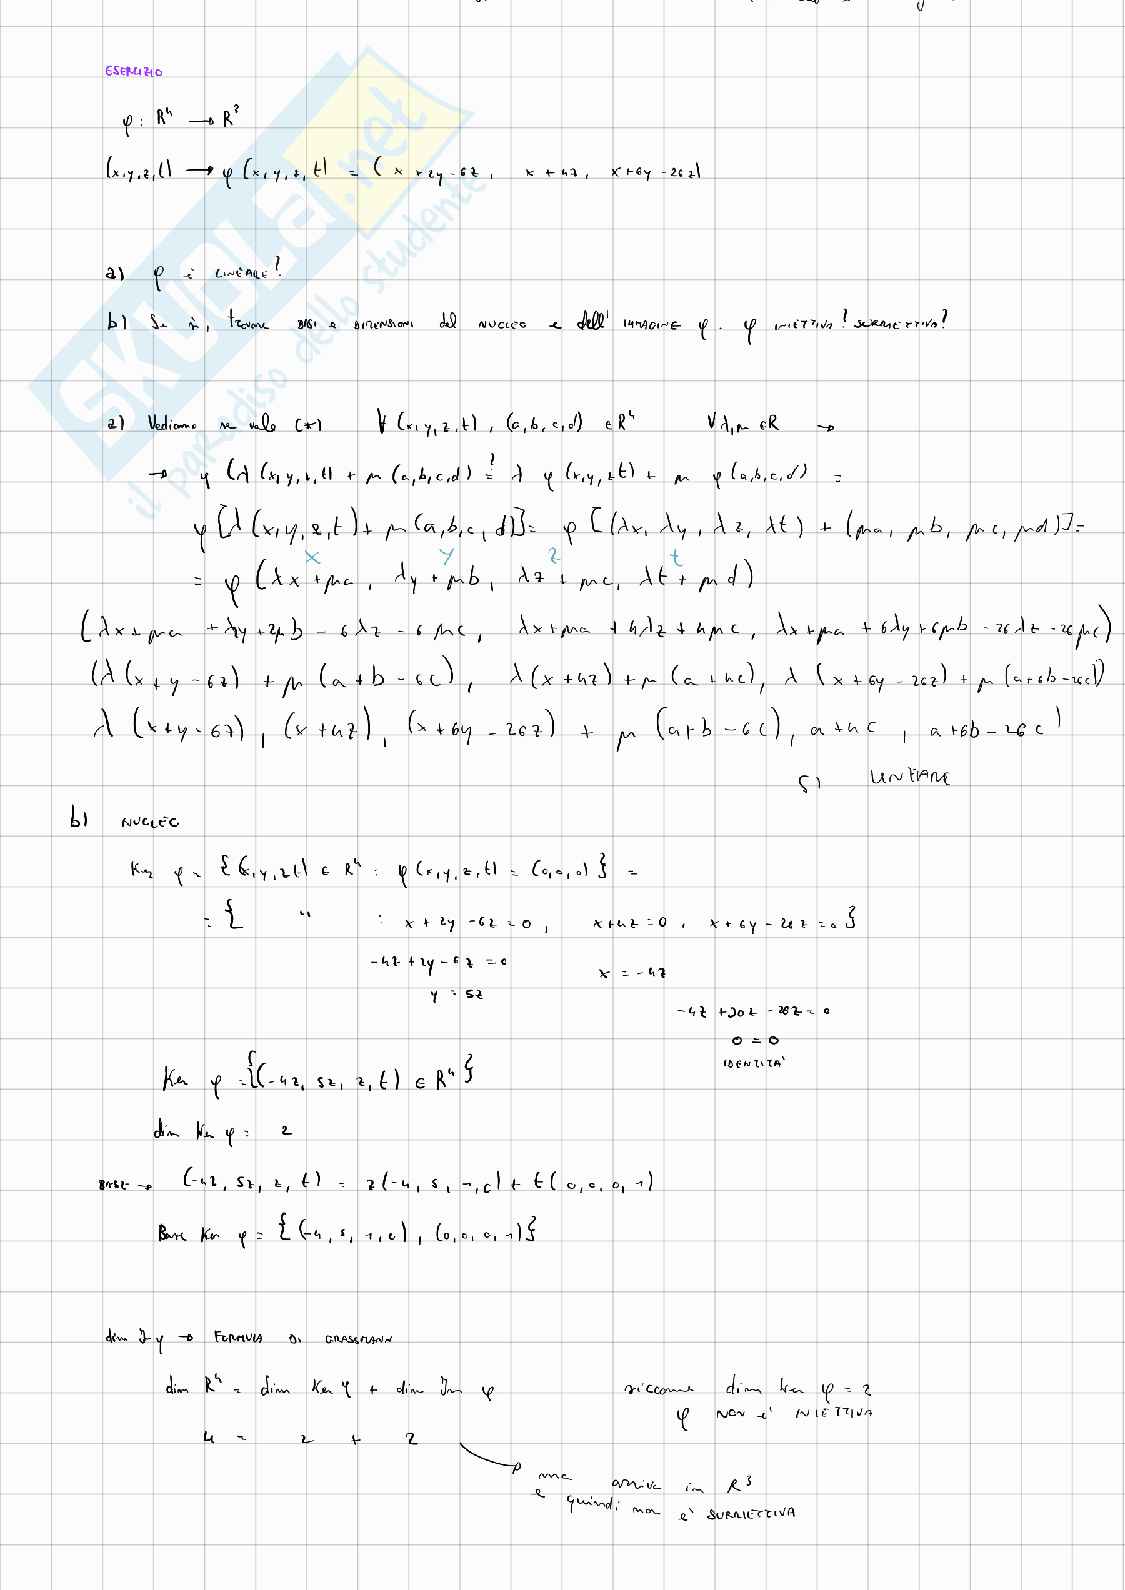 ESERCIZIO
φ: R⁴ → R³
(x,y,z,t) → φ(x,y,z,t) = (x+2y-6z, x+4z, x+6y-26z)
a) φ è LINEARE?
b) Se sì, trovare BASI e DIMENSIONI del NUCLEO e dell' IMMAGINE φ. φ INIETTIVA? SURRIETTIVA?
a) Vediamo se vale (*) ∀(x,y,z,t), (a,b,c,d) ∈R⁴ ∀λ,μ ∈R →
→ φ(λ(x,y,z,t) + μ(a,b,c,d) ?= λ φ(x,y,z,t) + μ φ(a,b,c,d) =
φ[λ(x,y,z,t) + μ(a,b,c,d)] = φ[(λx, λy, λz, λt) + (μa, μb, μc, μd)] =
x y z t
= φ(λx+μa, λy+μb, λz+μc, λt+μd)
(λx+μa + λy+2μb - 6λz - 6μc, λx+μa + 4λz + 4μc, λx+μa + 6λy+6μb - 26λz - 26μc)
(λ(x+y-6z) + μ(a+b-6c), λ(x+4z) + μ(a+4c), λ(x+6y-26z) + μ(a+6b-26c))
λ(x+y-6z), (x+4z), (x+6y-26z) + μ(a+b-6c), a+4c, a+6b-26c)
SI LINEARE
b) NUCLEO
Ker φ = {(x,y,z,t) ∈ R⁴ : φ(x,y,z,t) = (0,0,0)} =
= { " : x+2y-6z=0, x+4z=0, x+6y-26z=0}
-4z+2y-6z=0 x=-4z
y=5z
-4z+30z-26z=0
0=0
IDENTITA'
Ker φ = {(-4z, 5z, z, t) ∈ R⁴}
dim Ker φ = 2
BASE → (-4z, 5z, z, t) = z(-4,5,1,0) + t(0,0,0,1)
Base Ker φ = {(-4,5,1,0), (0,0,0,1)}
dim Im φ → FORMULA DI GRASSMANN
dim R⁴ = dim Ker φ + dim Im φ siccome dim Ker φ = 2
φ NON E' INIETTIVA
4 = 2 + 2
ma arriva in R³
e quindi non e' SURRIETTIVA
SKUOLA.net
il paradiso dello studente